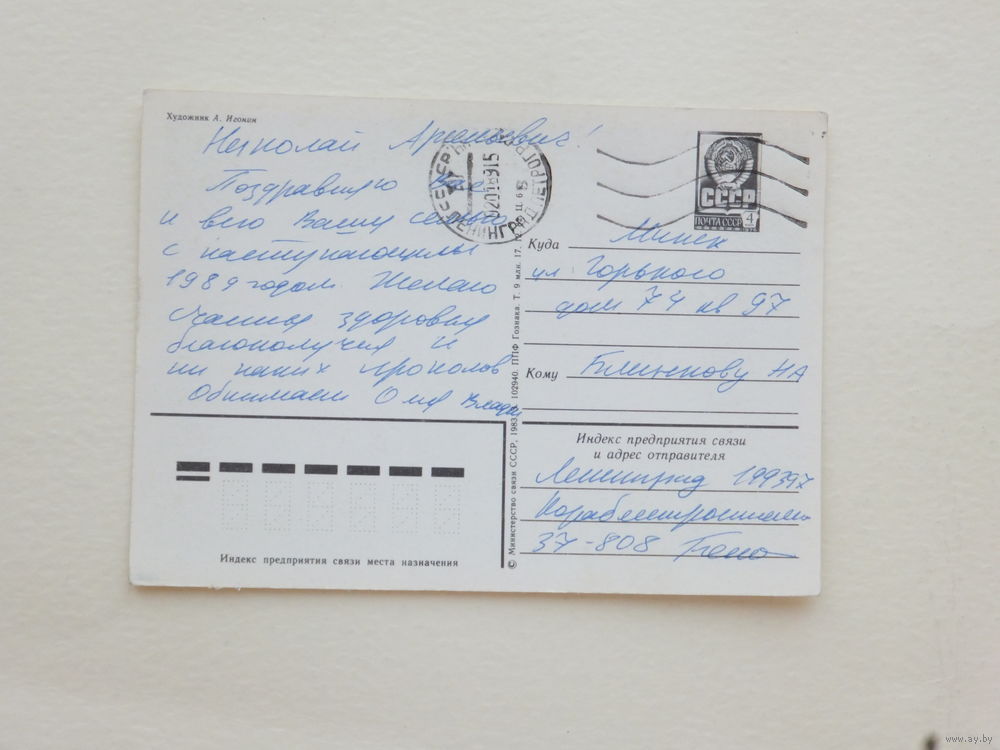 Художник А. Игонин
Николай Арсеньевич!
Поздравляю Вас
и всю Вашу семью
с наступающим
1989 годом. Желаю
счастья здоровья
благополучия и
ни каких проколов
Обнимаем Оля
СССР
ПОЧТА СССР 4
ЛЕНИНГРАД
Куда Минск
ул Горького
дом 74 кв 97
Кому Блинкову НА
Индекс предприятия связи
и адрес отправителя
Ленинград 199397
Кораблестроителей
37-808
Индекс предприятия связи места назначения
© Министерство связи СССР, 1983. 102940. ППФ Гознака. Т. 9 млн. 17. Ц. 6
www.ay.by